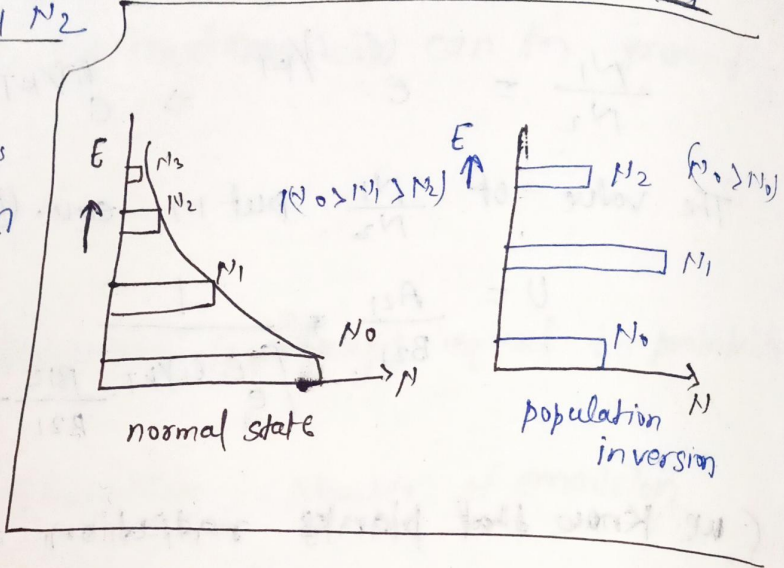 N2
E
N3
N2
(N0 > N1 > N2)
N1
N0
N
normal state
E
N2
N1
N0
N
population
inversion